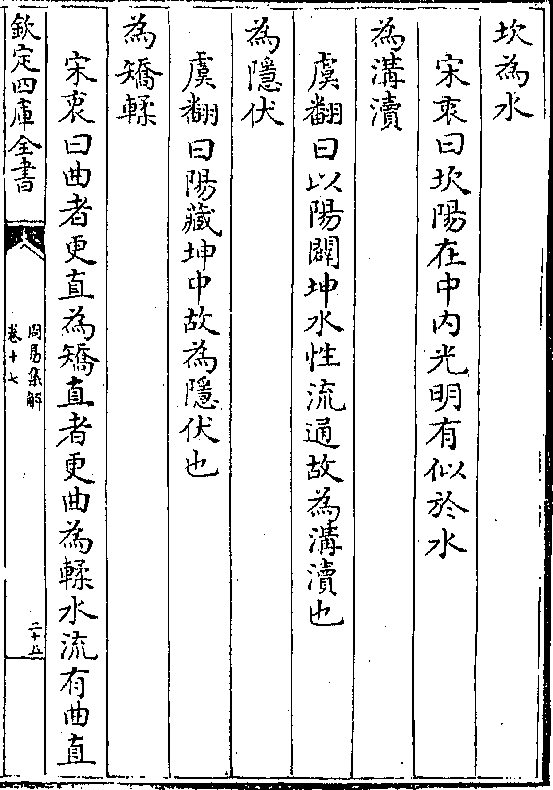 坎為水
宋衷曰坎陽在中内光明有似於水
為溝瀆
虞翻曰以陽闢坤水性流通故為溝瀆也
為隱伏
虞翻曰陽藏坤中故為隱伏也
為矯輮
宋衷曰曲者更直為矯直者更曲為輮水流有曲直
欽定四庫全書
周易集解
卷十七
二十五